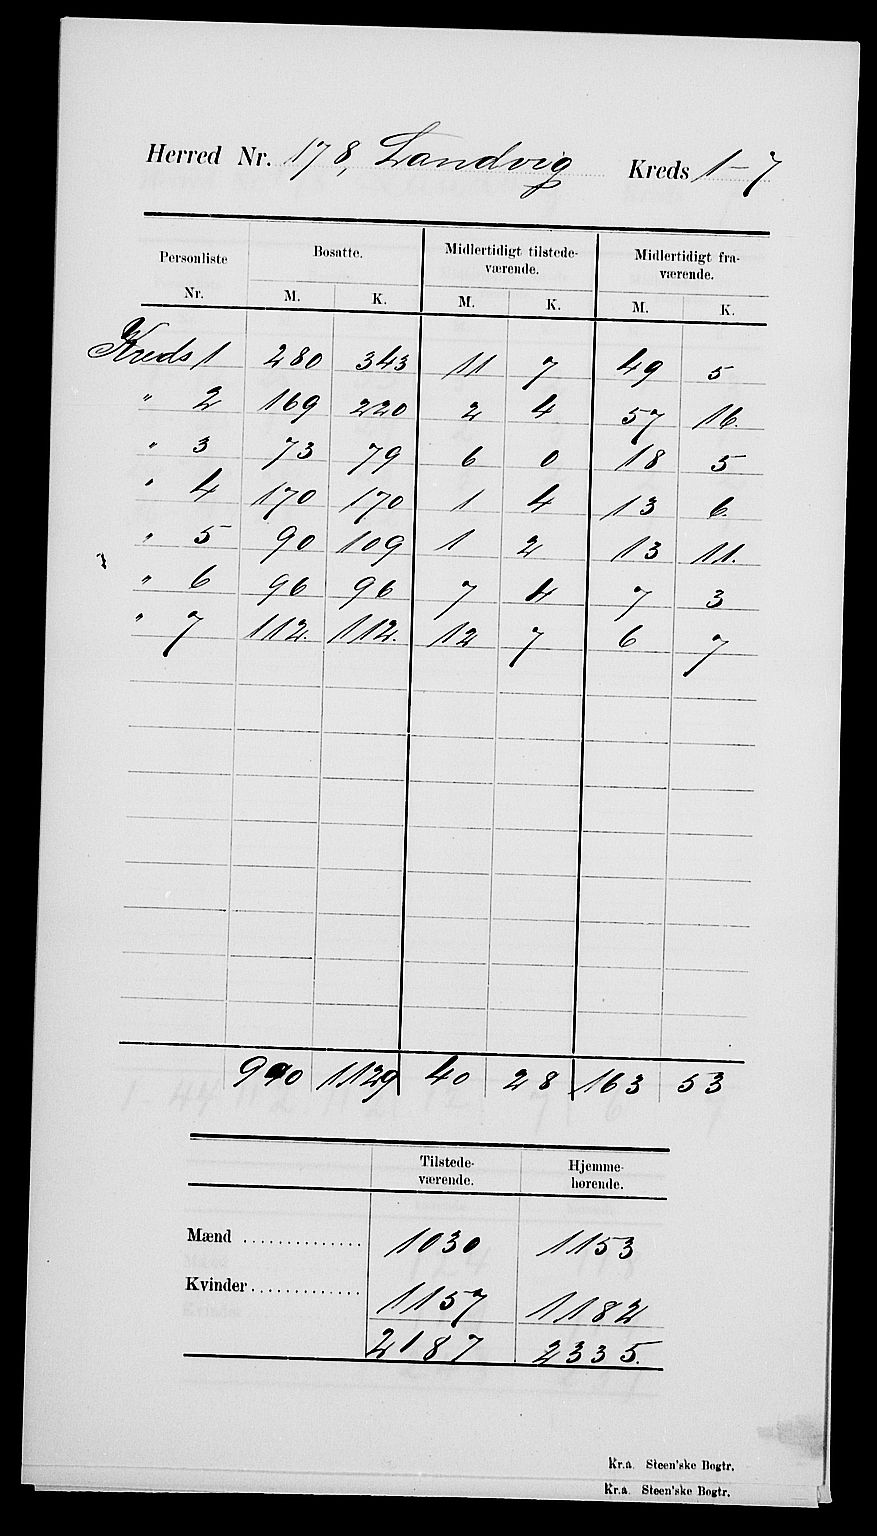 Herred Nr. 178, Landvig Kreds 1-7
Personliste Nr. Bosatte. Midlertidigt tilstede-værende. Midlertidigt fra-værende.
M. K. M. K. M. K.
Kreds 1 280 343 11 7 49 5
" 2 169 220 2 4 57 16.
" 3 73 79 6 0 18 5
" 4 170 170 1 4 13 6.
" 5 90 109 1 2 13 11.
" 6 96 96 7 4 7 3
" 7 112. 112. 12 7 6 7
990 1129 40 28 163 53
Tilstede-værende. Hjemme-hørende.
Mænd 1030 1153
Kvinder 1157 1182
2187 2335.
Kr.a. Steen'ske Bogtr.
Kr.a. Steen'ske Bogtr.